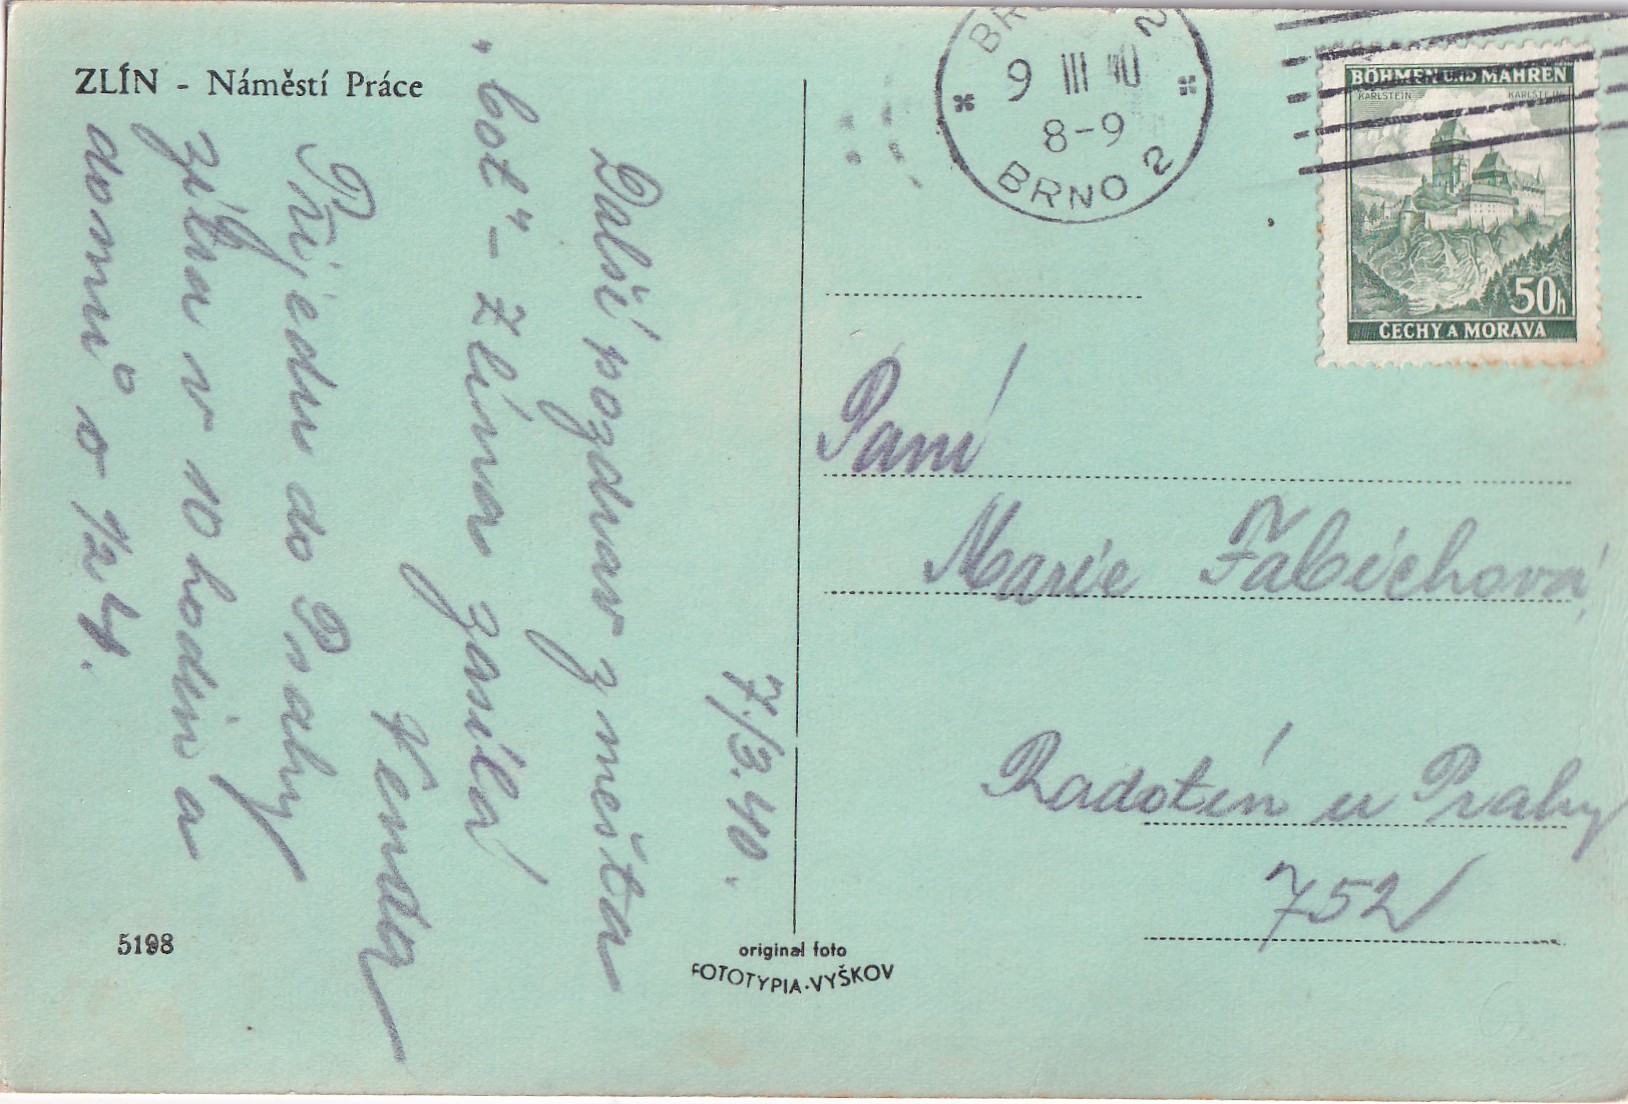 ZLÍN - Náměstí Práce
7./3.40.
Další pozdrav z města
"bot" - Zlína zasílá
Venda
Přijedu do Prahy
zítra v 10 hodin a
domů v 1/2 4.
5198
original foto
FOTOTYPIA-VYŠKOV
BRNO 2
9 III 40
8-9
BRNO 2
BÖHMEN UND MÄHREN
KARLSTEIN KARLŠTEJN
50h
ČECHY A MORAVA
Paní
Marie Fabichová
Radotín u Prahy
752